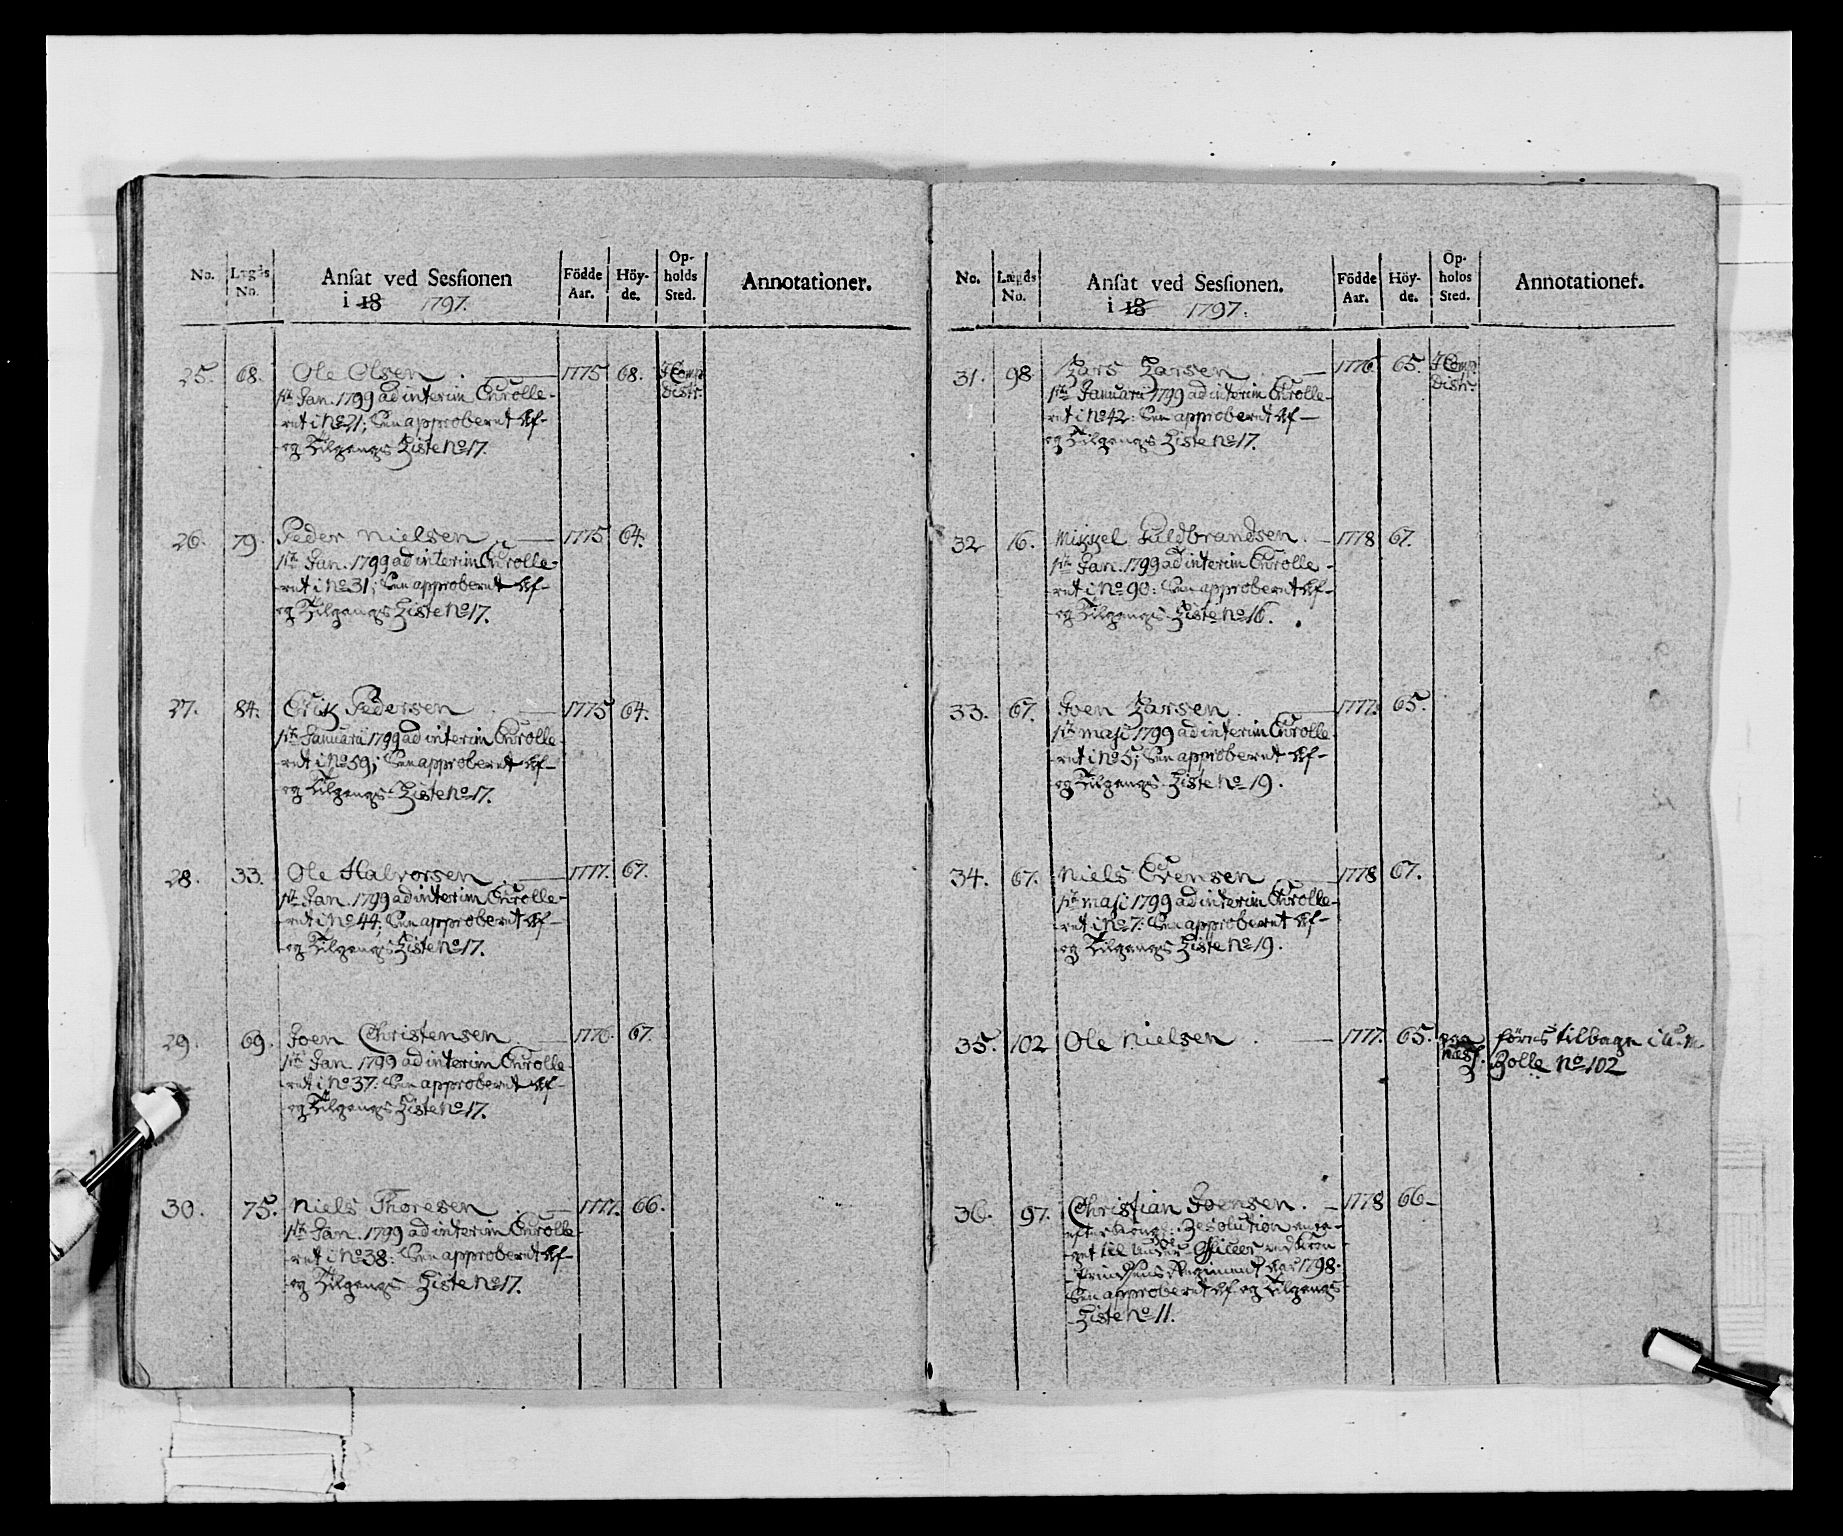 No. Lægds No. Ansat ved Sessionen i 18 1797. Födde Aar. Höy-de. Op-holds Sted. Annotationer.
25. 68. Ole Olsen . 1775 68. I Comp Distr.
pr. Jan. 1799 ad interim Enrolle-
ret i No 21; See approberet Af-
og Tilgangs Liste No 17.
26. 79. Peder Nielsen 1775 64.
pr. Jan. 1799 ad interim Enrolle-
ret i No 31; See approberet Af-
og Tilgangs Liste No 17.
27. 84. Erik Pedersen . 1775 64.
pr. Januarii 1799 ad interim Enrolle-
ret i No 59; See approberet Af-
og Tilgangs Liste No 17.
28. 33. Ole Halvorsen . 1777. 67.
pr. Jan. 1799 ad interim Enrolle-
ret i No 44; See approberet Af-
og Tilgangs Liste No 17.
29. 69. Joen Christensen 1776. 67.
pr. Jan. 1799 ad interim Enrolle-
ret i No 37: See approberet Af-
og Tilgangs Liste No 17.
30. 75. Niels Thoresen . 1777. 66.
pr. Jan. 1799 ad interim Enrolle-
ret i No 38: See approberet Af-
og Tilgangs Liste No 17.
No. Lægds No. Ansat ved Sessionen. i 18 1797. Födde Aar. Höy-de. Op-holds Sted. Annotationer.
31. 98 Lars Larsen . 1776 65. I Comp Distr.
pr. Januarii 1799 ad interim Enrolle-
ret i No 42: See approberet Af-
og Tilgangs Liste No 17.
32 16. Mikkel Guldbrandsen. 1778 67.
pr. Jan. 1799 ad interim Enrolle-
ret i No 90: See approberet Af-
og Tilgangs Liste No 16.
33. 67. Joen Larsen . 1777. 65.
pr. Maji 1799 ad interim Enrolle-
ret i No 5; See approberet Af-
og Tilgangs Liste No 19.
34. 67. Niels Evensen 1778 67.
pr. Maji 1799 ad interim Enrolle-
ret i No 7: See approberet Af-
og Tilgangs Liste No 19.
35. 102 Ole Nielsen . 1777. 65. förres tilbage i
Rolle No 102
36. 97. Christian Joensen. 1778 66
efter Kongl. Resolution anta-
get til Under Officeer ved Kron
Prindsens Regiment Aar 1798.
See approberet Af og Tilgangs
Liste No 11.